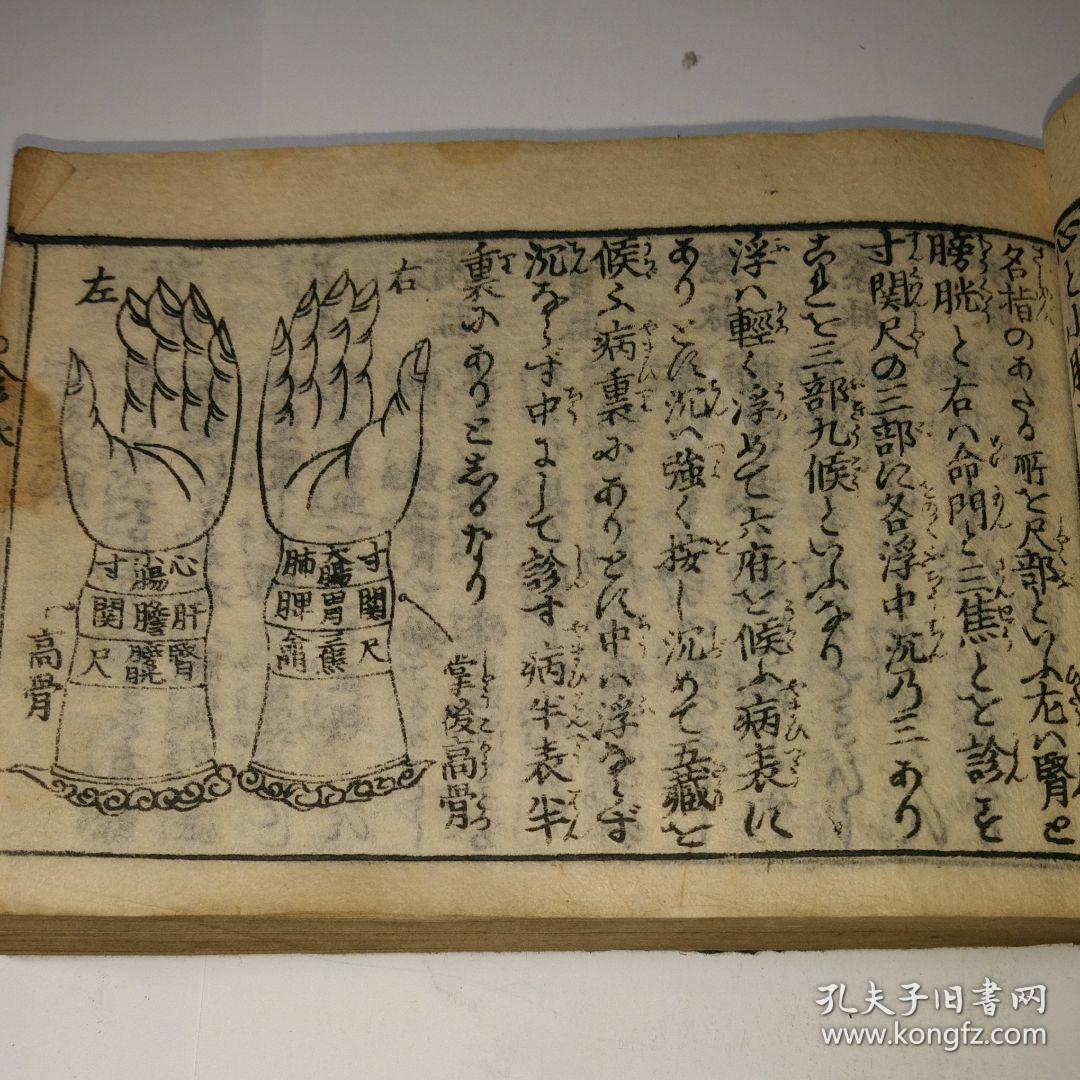 名指のあたる所を尺部といふ左は腎と
膀胱と右は命門と三焦とを診す
寸関尺の三部に各浮中沉乃三あり
これを三部九候といふなり
浮は輕く浮めて六府を候ふ病表に
ありとす沉は強く按し沉めて五藏を
候ふ病裏にありとす中は浮ならず
沉ならず中にして診す病半表半
裏にありとしるなり
右
寸 大腸 肺
関 胃 脾
尺 三焦 命門
掌後高骨
左
心 小腸 寸
肝 膽 関
腎 膀胱 尺
高骨
孔夫子旧书网
www.kongfz.com